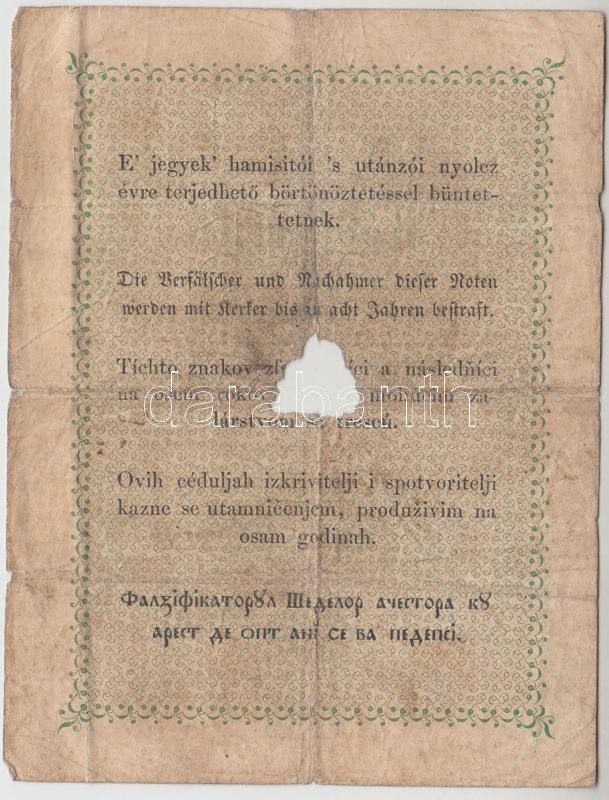 E' jegyek' hamisitói 's utánzói nyolcz
évre terjedhető börtönöztetéssel büntet-
tetnek.
Die Verfälscher und Nachahmer dieser Noten
werden mit Kerker bis zu acht Jahren bestraft.
Tíchto znakov a následňíci
na osem za
larstvom
Ovih céduljah izkrivitelji i spotvoritelji
kazne se utamničenjem, produživim na
osam godinah.
Фалзіфікаторꙋл Шеделор ачестора кꙋ
арест де опт ані се ва педепсі.
darabanth